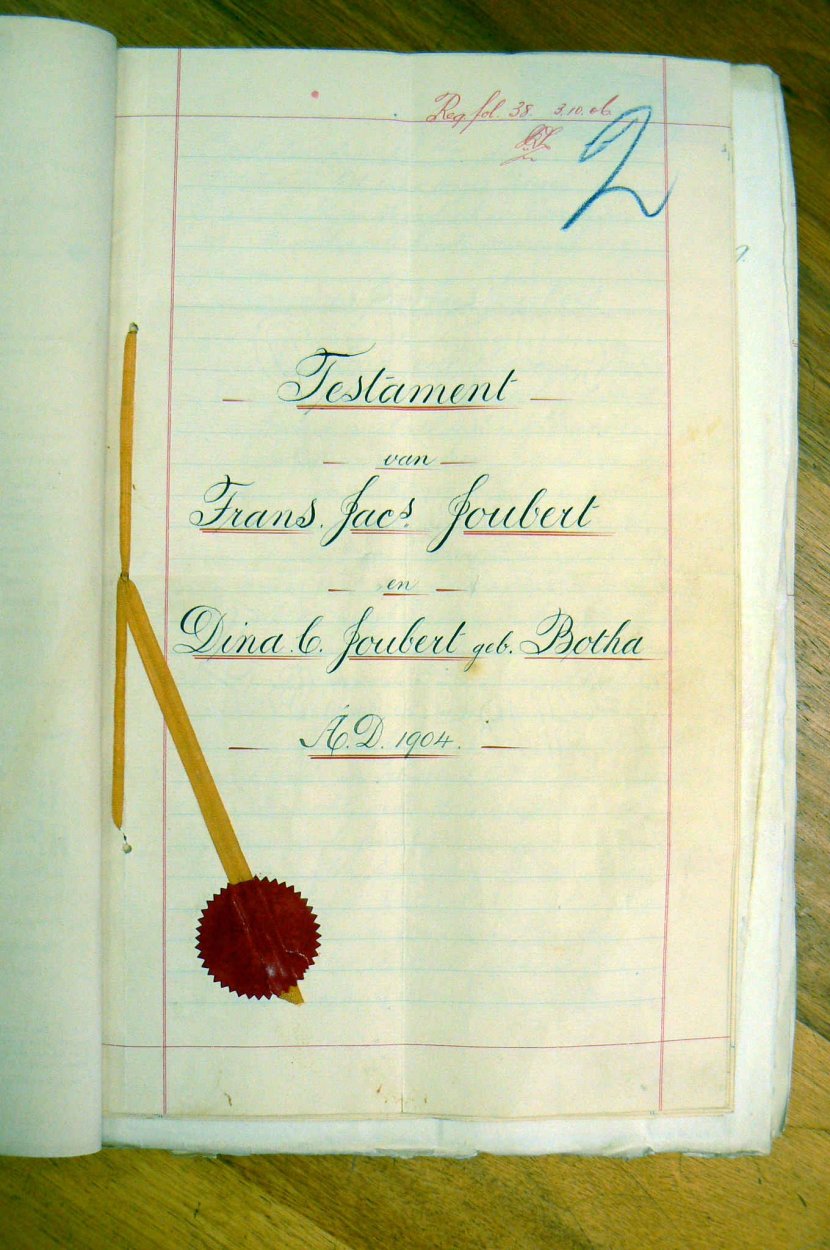 Reg. fol. 38. 3.10.06.
2
Testament
van
Frans. Jacs. Joubert
en
Dina. C. Joubert geb. Botha
A.D. 1904.